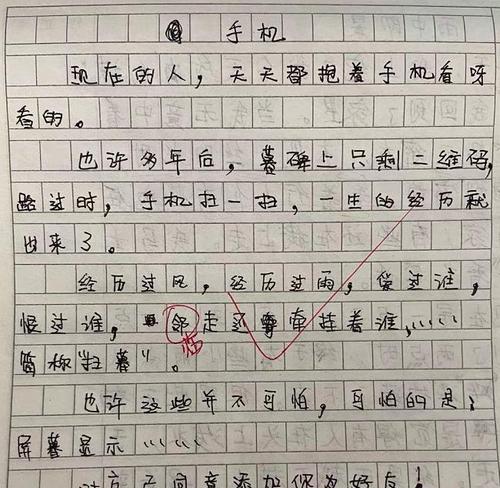 手机
现在的人，天天都抱着手机看呀
看的。
也许多年后，墓碑上只剩二维码，
路过时，手机扫一扫，一生的经历就
出来了。
经历过风，经历过雨，爱过谁，
恨过谁，邻走还牵挂着谁，……
临
简称"扫墓"。
也许这些并不可怕，可怕的是：
屏幕显示……
对方不同意添加你为好友！